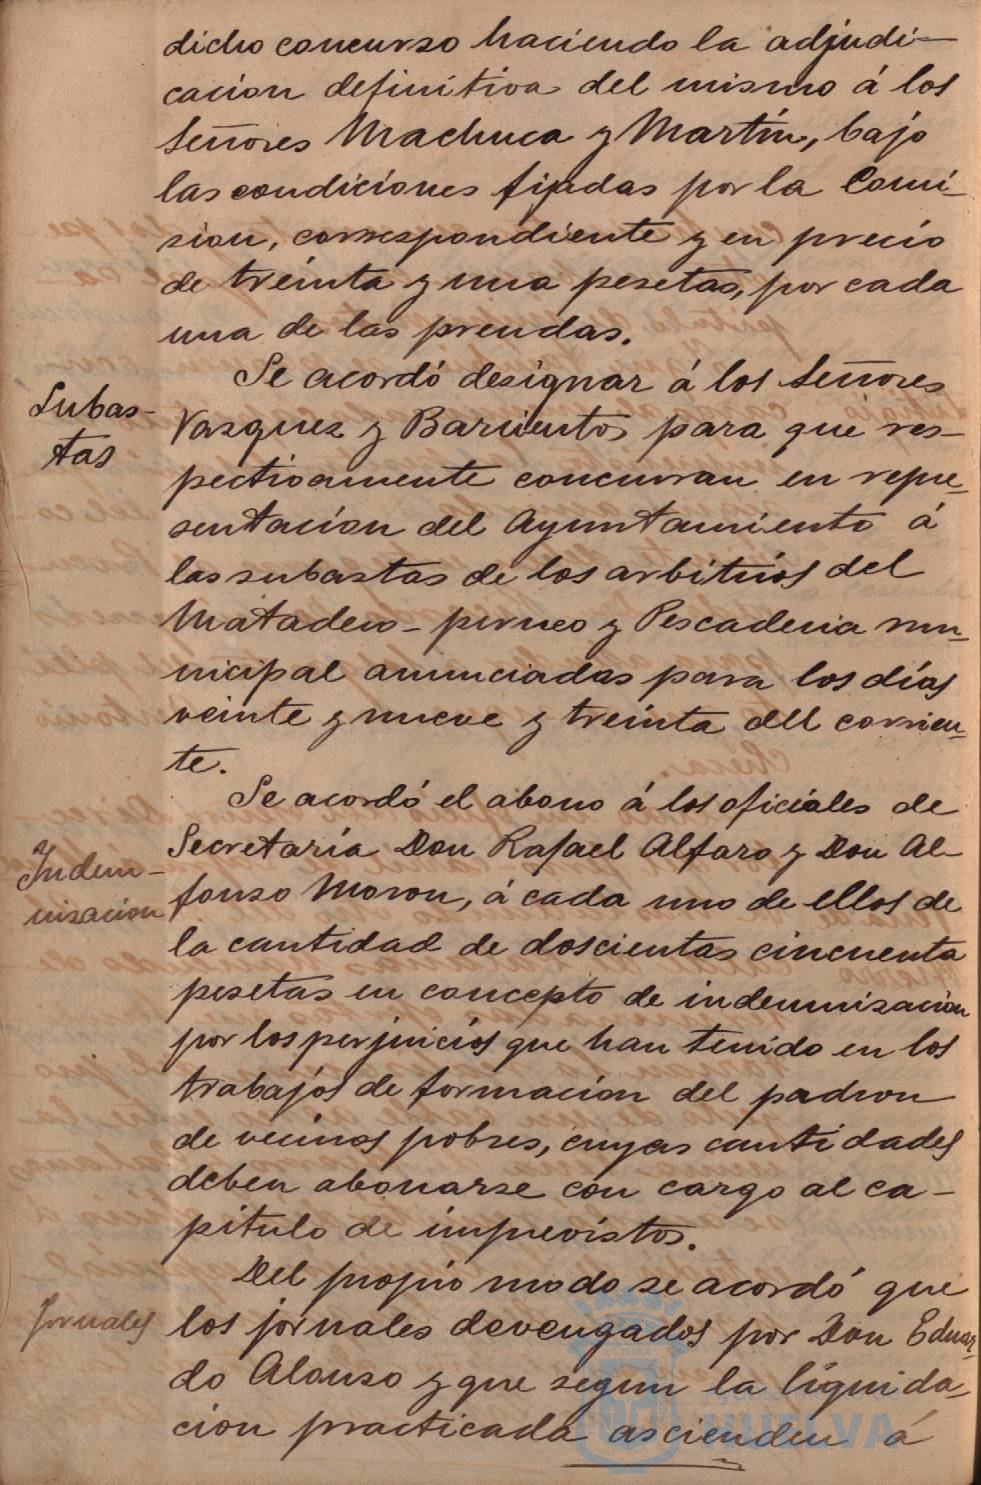 dicho concurso haciendo la adjudi-
cacion definitiva del mismo á los
Señores Machuca y Martín, bajo
las condiciones fijadas por la Comi-
sion, correspondiente y en precio
de treinta y una pesetas, por cada
una de las prendas.
Subas-
tas
Se acordó designar á los Señores
Vazquez y Barrientos para que res-
pectivamente concurran en repre-
sentacion del Ayuntamiento á
las subastas de los arbitrios del
Matadero-perneo y Pescaderia mu-
nicipal anunciadas para los días
veinte y nueve y treinta del corrien-
te.
Indem-
nizacion
Se acordó el abono á los oficiales de
Secretaría Don Rafael Alfaro y Don Al-
fonso Moron, á cada uno de ellos de
la cantidad de doscientas cincuenta
pesetas en concepto de indemnizacion
por los perjuicios que han tenido en los
trabajos de formacion del padron
de vecinos pobres, cuyas cantidades
deben abonarse con cargo al ca-
pitulo de imprevistos.
Jornales
Del propio modo se acordó que
los jornales devengados por Don Eduar-
do Alonso y que segun la liquida-
cion practicada ascienden á
HUELVA